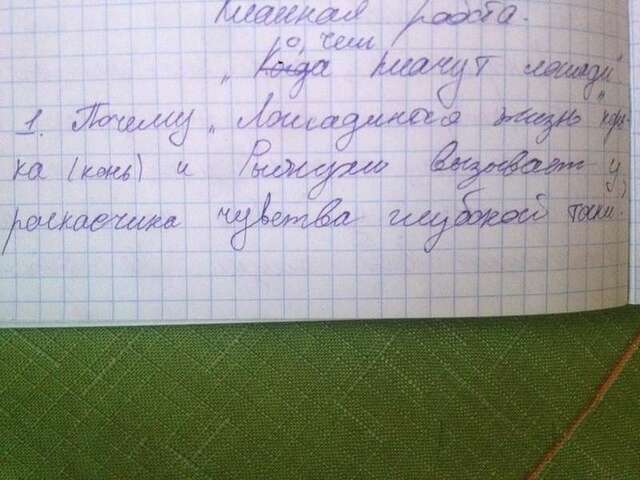 Классная работа.
о чем
"Когда плачут лошади"
1. Почему "Лошадиная жизнь" Кар-
ка (конь) и Рыжухи вызывает у
рассказчика чувства глубокой тоски.